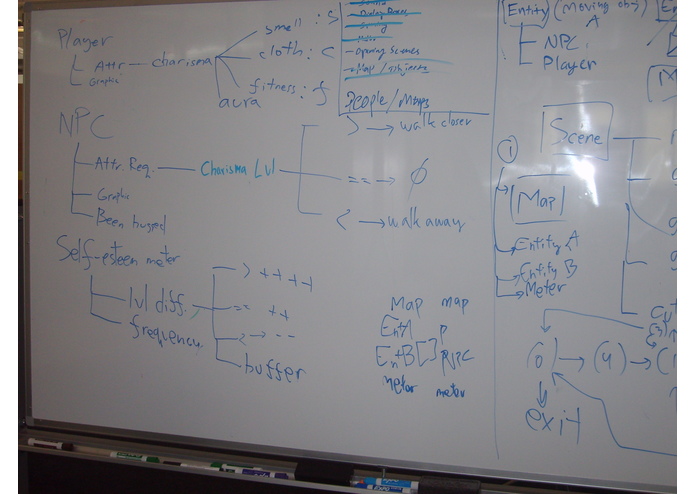 Player
Attr. charisma
Graphic
smell: S
cloth: C
fitness: f
aura
Dialog Boxes
Opening Scenes
Map / objects
People / Maps
NPC
Attr. Req. Charisma Lvl
Graphic
Been hugged
> → walk closer
== → ∅
< → walk away
Self-esteem meter
lvl diff.
frequency
> ++ ++
== ++
< → --
buffer
Map map
EntA p
EntB[] NPC
meter meter
Entity (Moving obj)
A
NPC
Player
Scene
1
Map
Entity A
Entity B
Meter
(0) → (4) → (
exit